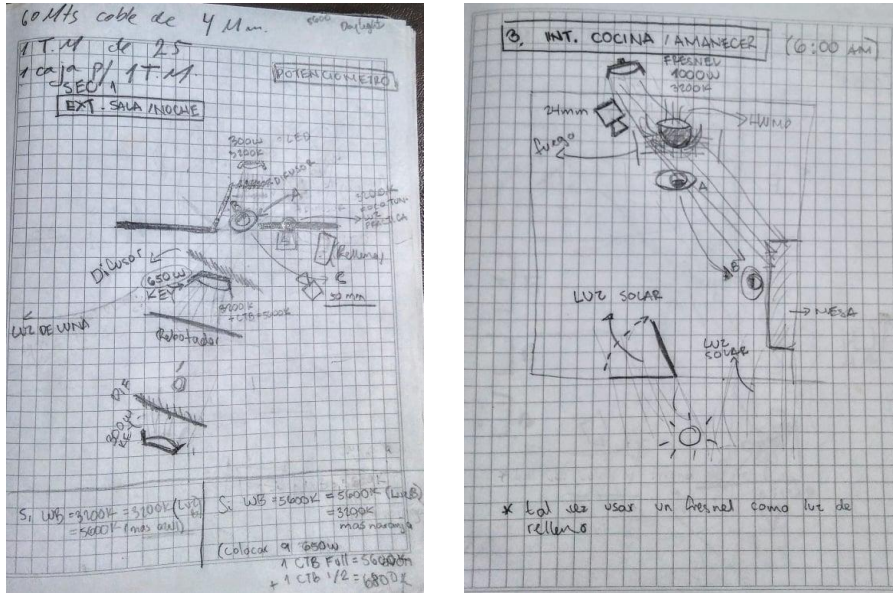 60 Mts cable de 4 Mm.
5600 Daylight
1 T.M de 25
1 caja p/ 1 T.M
SEC 1
POTENCIOMETRO
EXT - SALA / NOCHE
300W
LED
3200K
DIFUSOR
A
3200K
LUZ
PRACTICA
(Relleno)
50 mm
Difusor
650W
KEY
3200K
+ CTB = 5600K
LUZ DE LUNA
Rebotador
KEY
Si WB = 3200K = 3200K
= 5600K (mas azul)
Si WB = 5600K = 5600K
= 3200K
mas naranja
(colocar a 650W
1 CTB Full = 5600K
+ 1 CTB 1/2 = 6800K
3. INT. COCINA / AMANECER (6:00 AM)
FRESNEL
1000W
3200K
24mm
HUMO
fuego
A
B
LUZ SOLAR
MESA
LUZ
SOLAR
* tal vez usar un fresnel como luz de
relleno